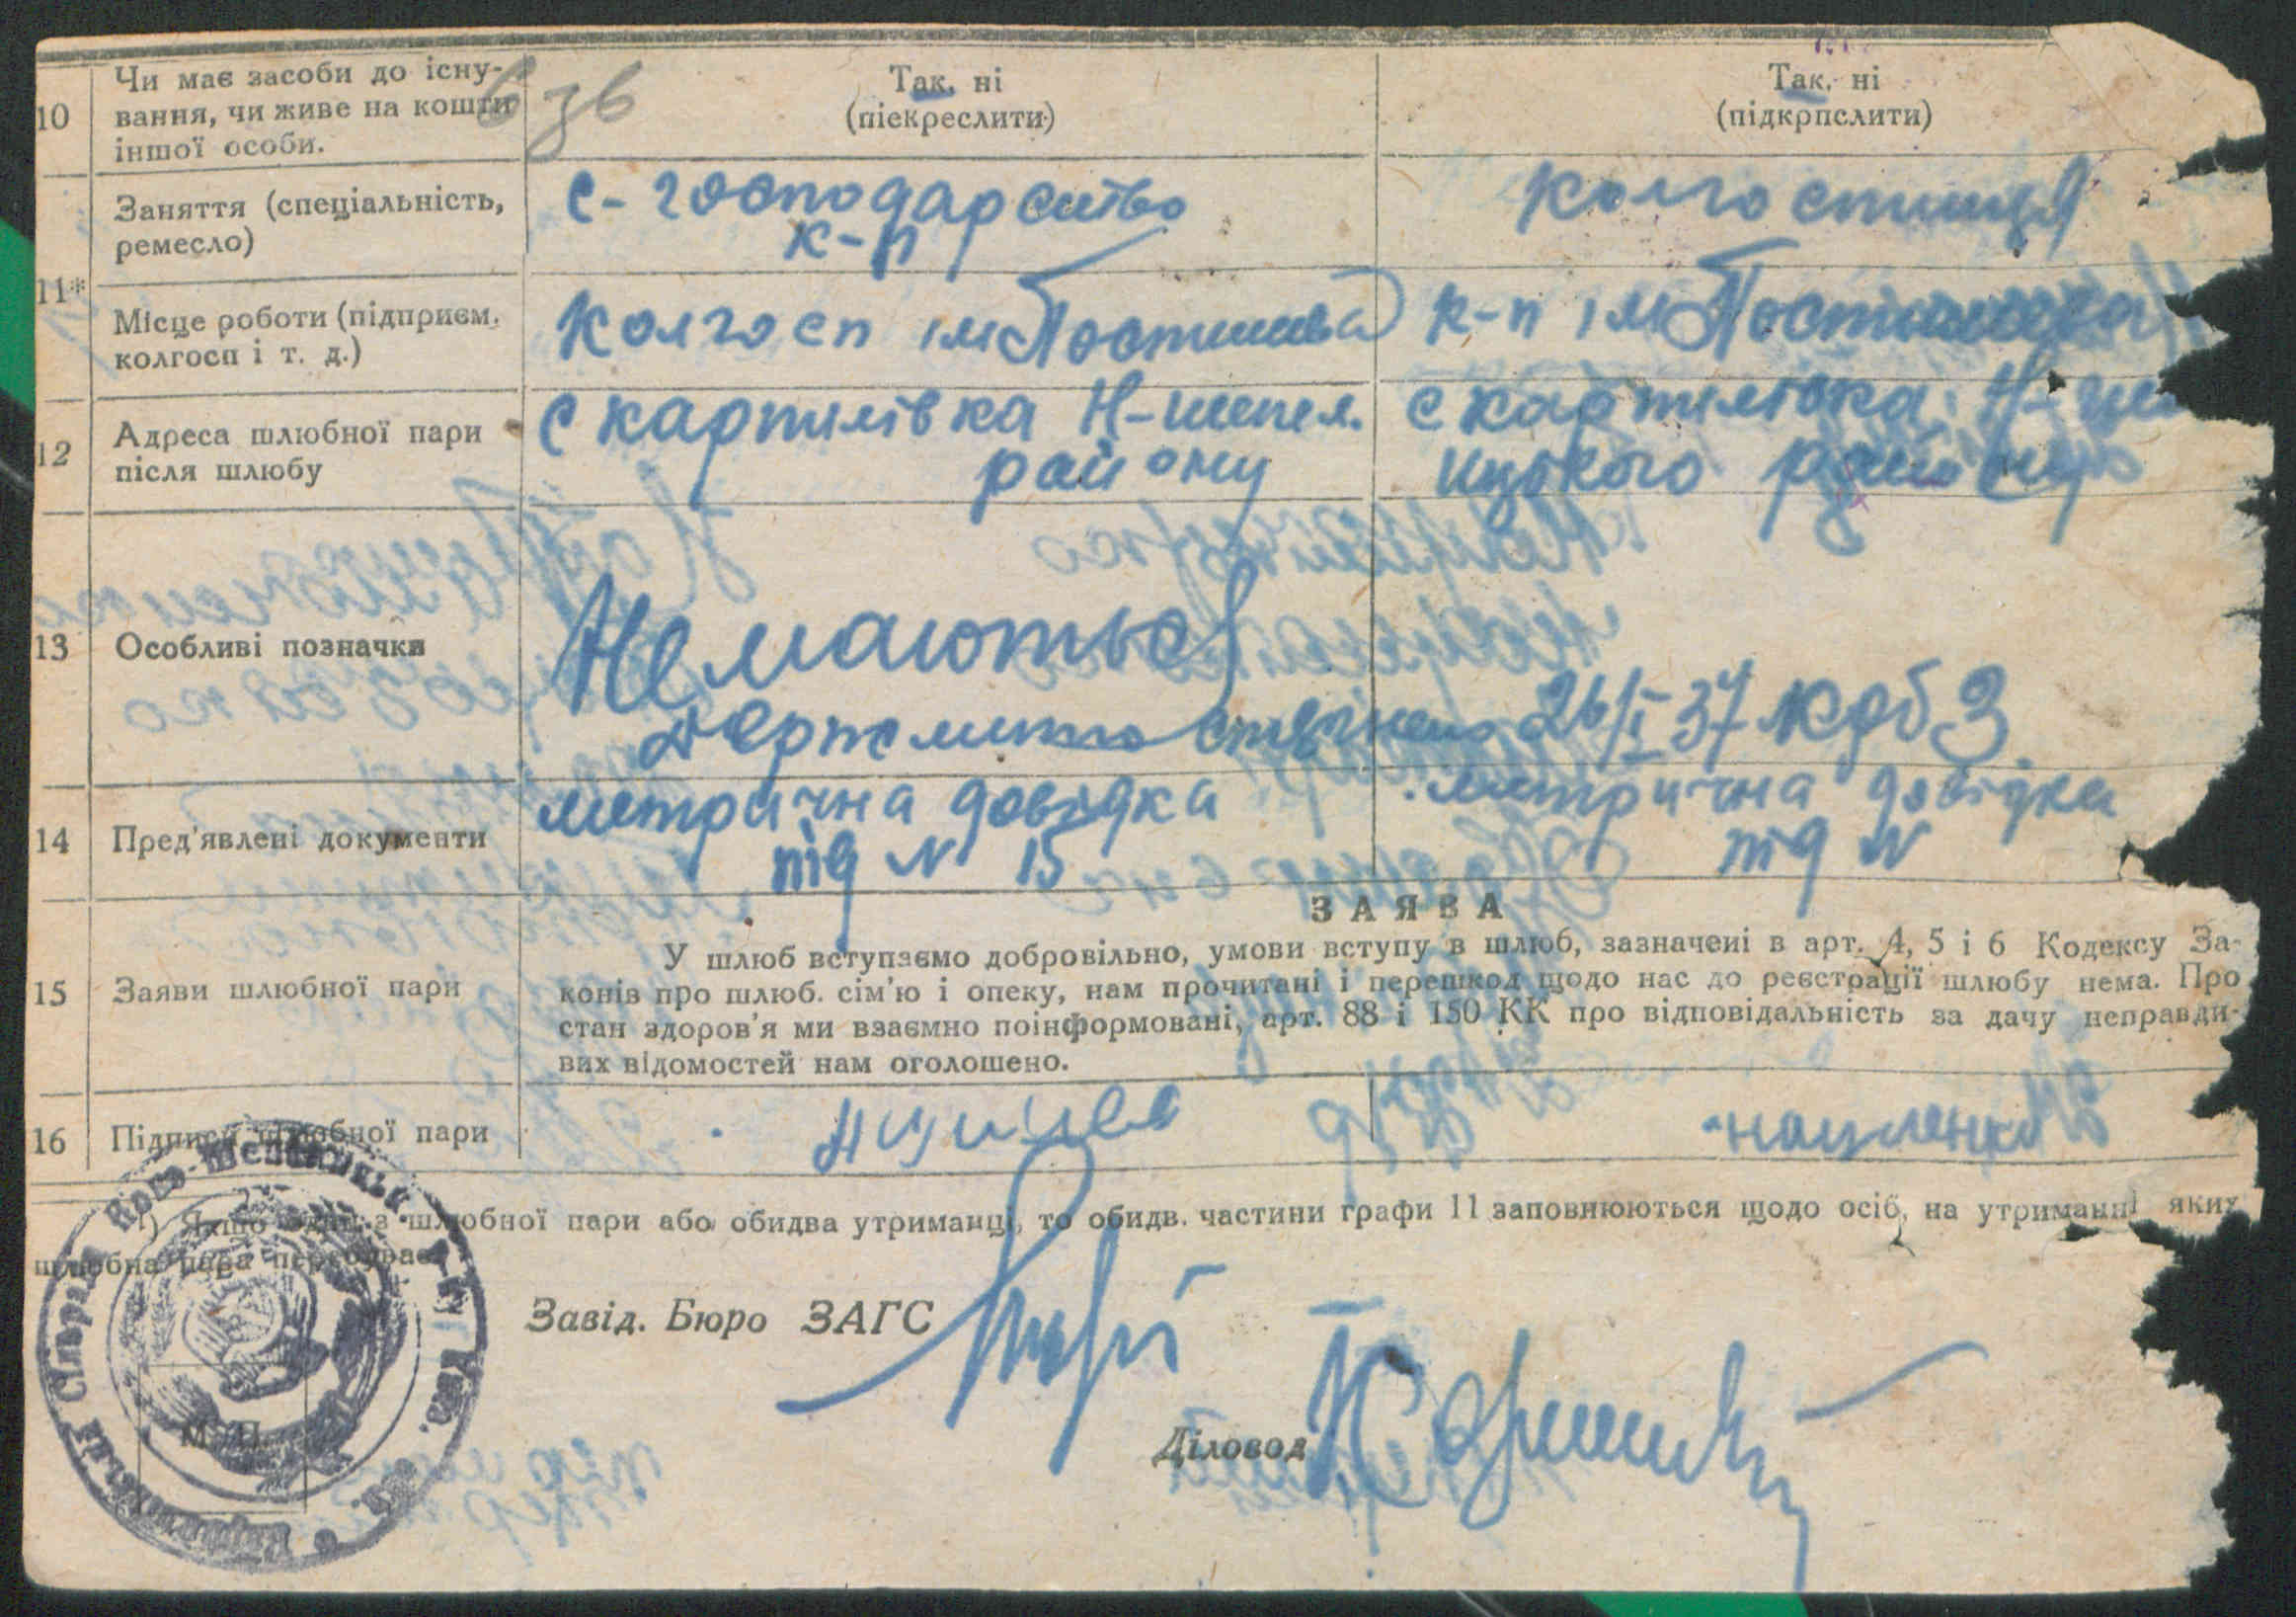 10 Чи має засоби до існу-
вання, чи живе на кошти
іншої особи.
Так, ні
(піекреслити)
Так, ні
(підкрпслити)
11*
Заняття (спеціальність,
ремесло)
с-господарство
к-п
колгоспниця
Місце роботи (підприєм.
колгосп і т. д.)
колгосп ім Постишева
к-п ім Постишева
12 Адреса шлюбної пари
після шлюбу
с картилівка Н-шепел.
району
с картилівка Н-ше
ицького району
13 Особливі позначки
Не мається
26/I 37
14 Пред'явлені документи
метрична довідка
під N 15
метрична довідка
під N
15 Заяви шлюбної пари
ЗАЯВА
У шлюб вступаємо добровільно, умови вступу в шлюб, зазначені в арт. 4, 5 і 6 Кодексу За-
конів про шлюб. сім'ю і опеку, нам прочитані і перешкод щодо нас до реєстрації шлюбу нема. Про
стан здоров'я ми взаємно поінформовані, арт. 88 і 150 КК про відповідальність за дачу неправди-
вих відомостей нам оголошено.
16 Підписи шлюбної пари
1) Якщо один з шлюбної пари або обидва утриманці, то обидв. частини графи 11 заповнюються щодо осіб, на утриманні яких
шлюбна пара перебуває
Завід. Бюро ЗАГС
Діловод
М. П.